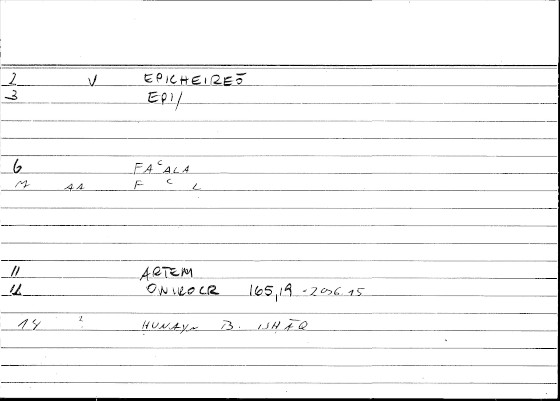 2 V EPICHEIREŌ
3 EPI/
6 FAᶜALA
M AA F ᶜ L
11 ARTEM
12 ONIROCR 165,19 - 206.15
14 HUNAYN B. ISHĀQ